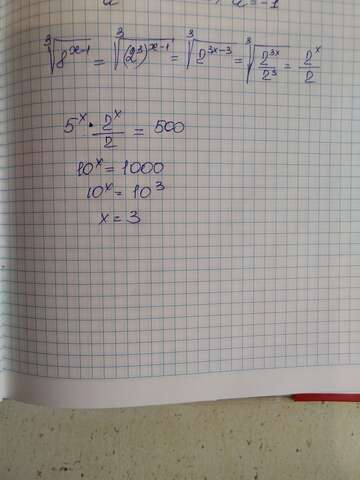 a = -1
∛(8^(x-1)) = ∛((2^3)^(x-1)) = ∛(2^(3x-3)) = ∛(2^(3x)/2^3) = 2^x/2
5^x · 2^x/2 = 500
10^x = 1000
10^x = 10^3
x = 3